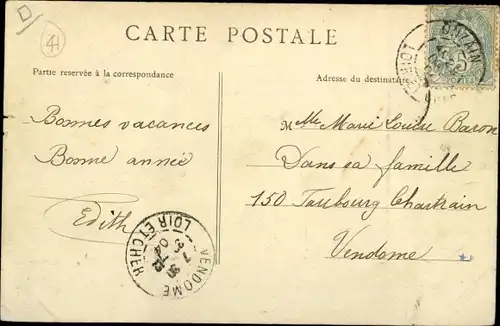 D
41
CARTE POSTALE
Partie reservée à la correspondance
Adresse du destinataire
Bonnes vacances
Bonne année
Edith
Mlle Marie Louise Baron
Dans sa famille
150 Faubourg Chartrain
Vendome
ONZAIN
5
POSTES
VENDOME
LOIR ET CHER
04